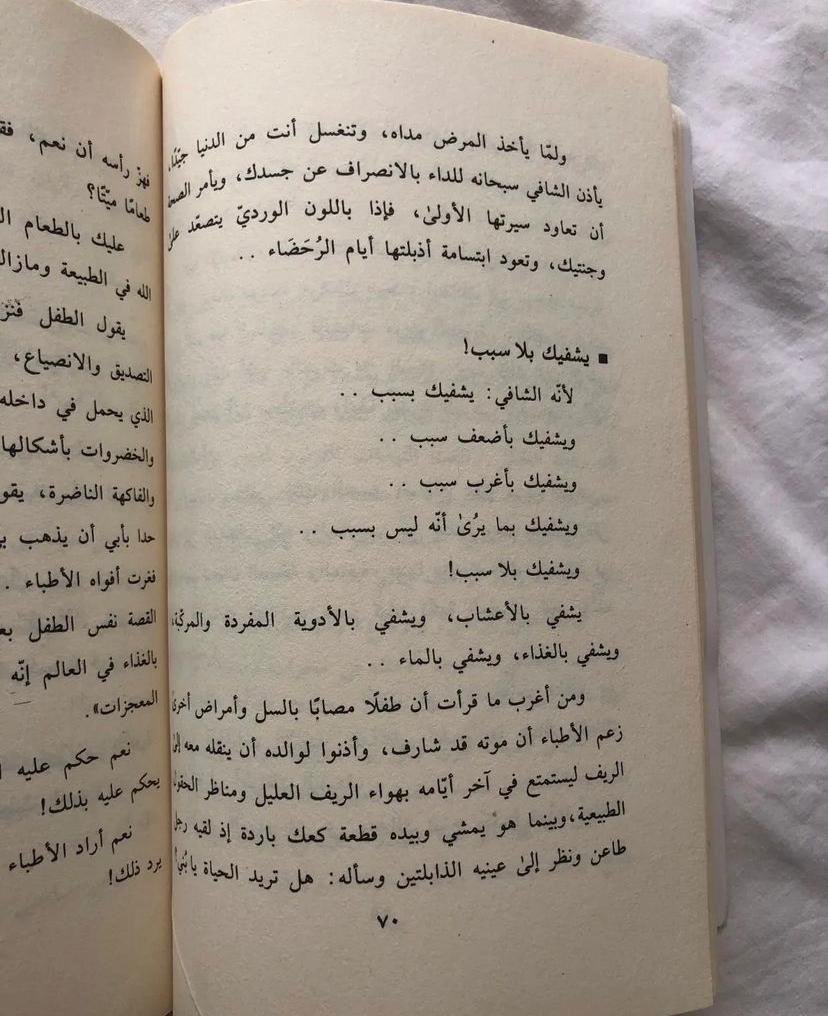 ولمّا يأخذ المرض مداه، وتنغسل أنت من الدنيا جيّدًا،
يأذن الشافي سبحانه للداء بالانصراف عن جسدك، ويأمر الصحة
أن تعاود سيرتها الأولىٰ، فإذا باللون الورديّ يتصعّد علىٰ
وجنتيك، وتعود ابتسامة أذبلتها أيام الرُحَضَاء ..
■ يشفيك بلا سبب!
لأنّه الشافي: يشفيك بسبب ..
ويشفيك بأضعف سبب ..
ويشفيك بأغرب سبب ..
ويشفيك بما يرُىٰ أنّه ليس بسبب ..
ويشفيك بلا سبب!
يشفي بالأعشاب، ويشفي بالأدوية المفردة والمركّبة،
ويشفي بالغذاء، ويشفي بالماء ..
ومن أغرب ما قرأت أن طفلًا مصابًا بالسل وأمراض أخرىٰ
زعم الأطباء أن موته قد شارف، وأذنوا لوالده أن ينقله معه إلىٰ
الريف ليستمتع في آخر أيّامه بهواء الريف العليل ومناظر الحقول
الطبيعية،وبينما هو يمشي وبيده قطعة كعك باردة إذ لقيه رجل
طاعن ونظر إلىٰ عينيه الذابلتين وسأله: هل تريد الحياة يا بُني؟
٧٠
فهزّ رأسه أن نعم،
طعامًا ميّتًا؟
عليك بالطعام
الله في الطبيعة ومازال
يقول الطفل
التصديق والانصياع،
الذي يحمل في داخله
والخضروات بأشكالها
والفاكهة الناضرة،
حدا بأبي أن يذهب
ففغرت أفواه الأطباء .
القصة نفس الطفل
بالغذاء في العالم إنّه
المعجزات».
نعم حكم عليه
يحكم عليه بذلك!
نعم أراد الأطباء
يرد ذلك!